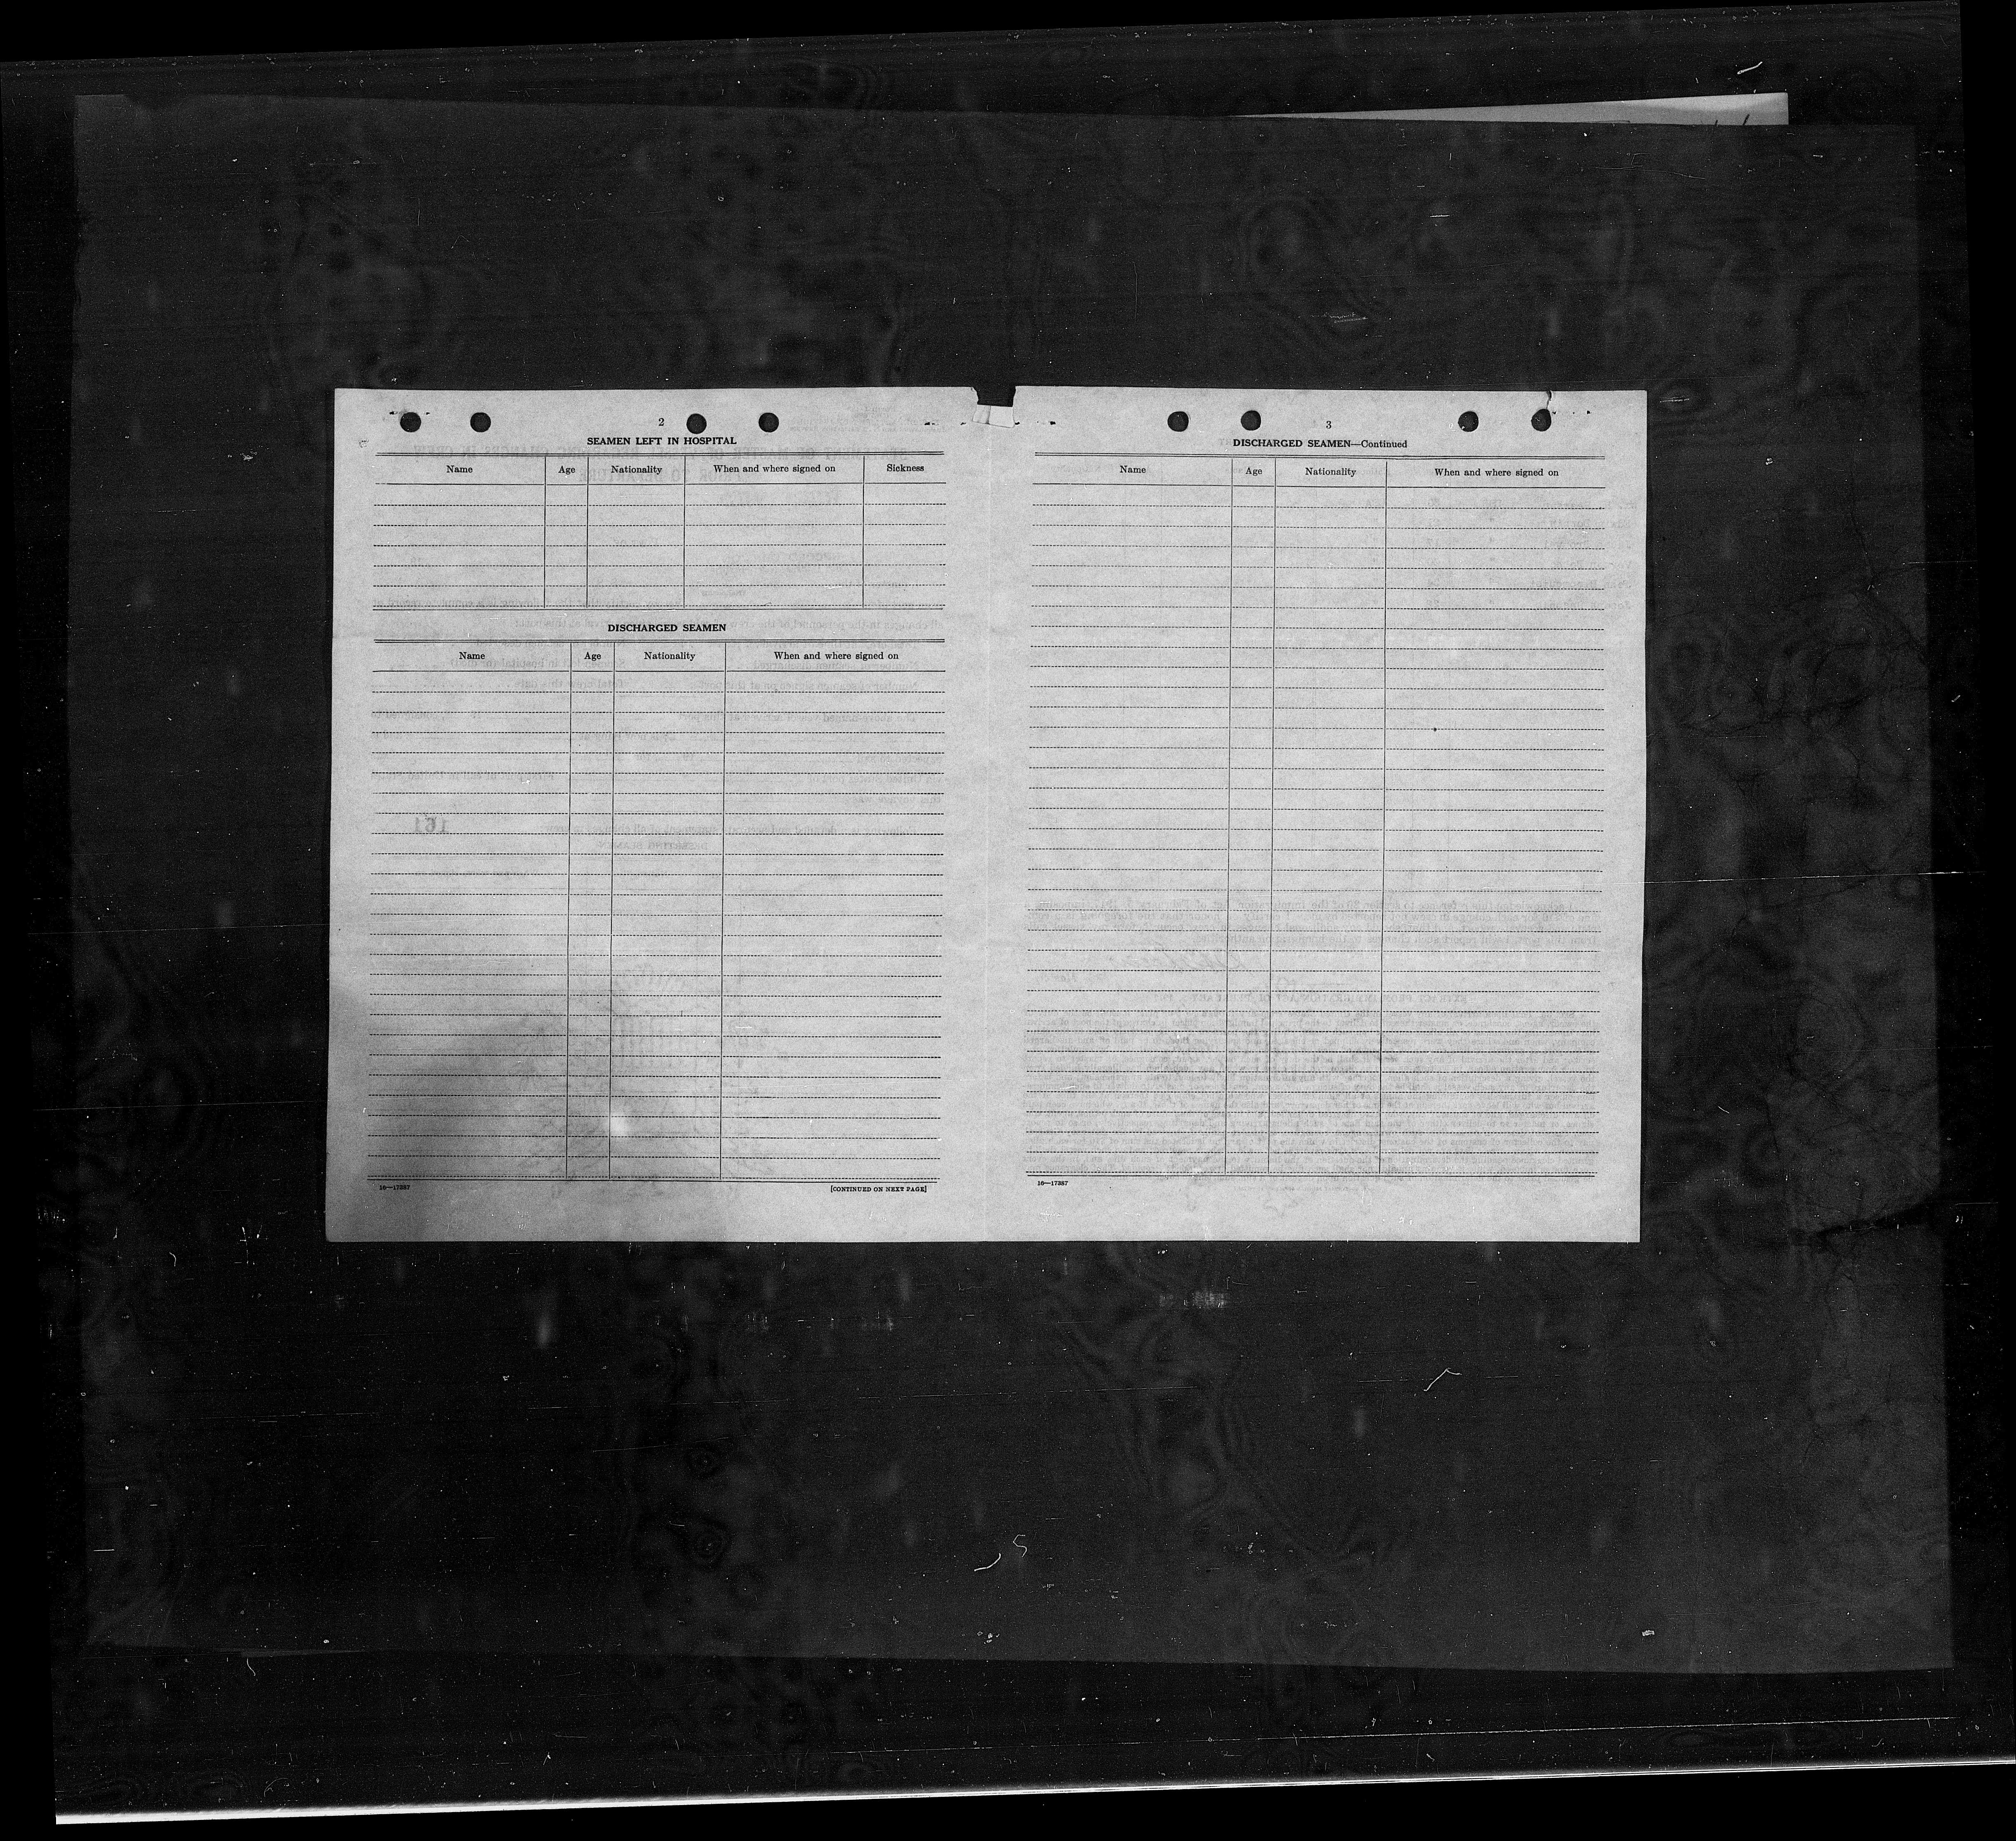 2
SEAMEN LEFT IN HOSPITAL
Name Age Nationality When and where signed on Sickness
DISCHARGED SEAMEN
Name Age Nationality When and where signed on
16—17387
[CONTINUED ON NEXT PAGE]
3
DISCHARGED SEAMEN—Continued
Name Age Nationality When and where signed on
16—17387